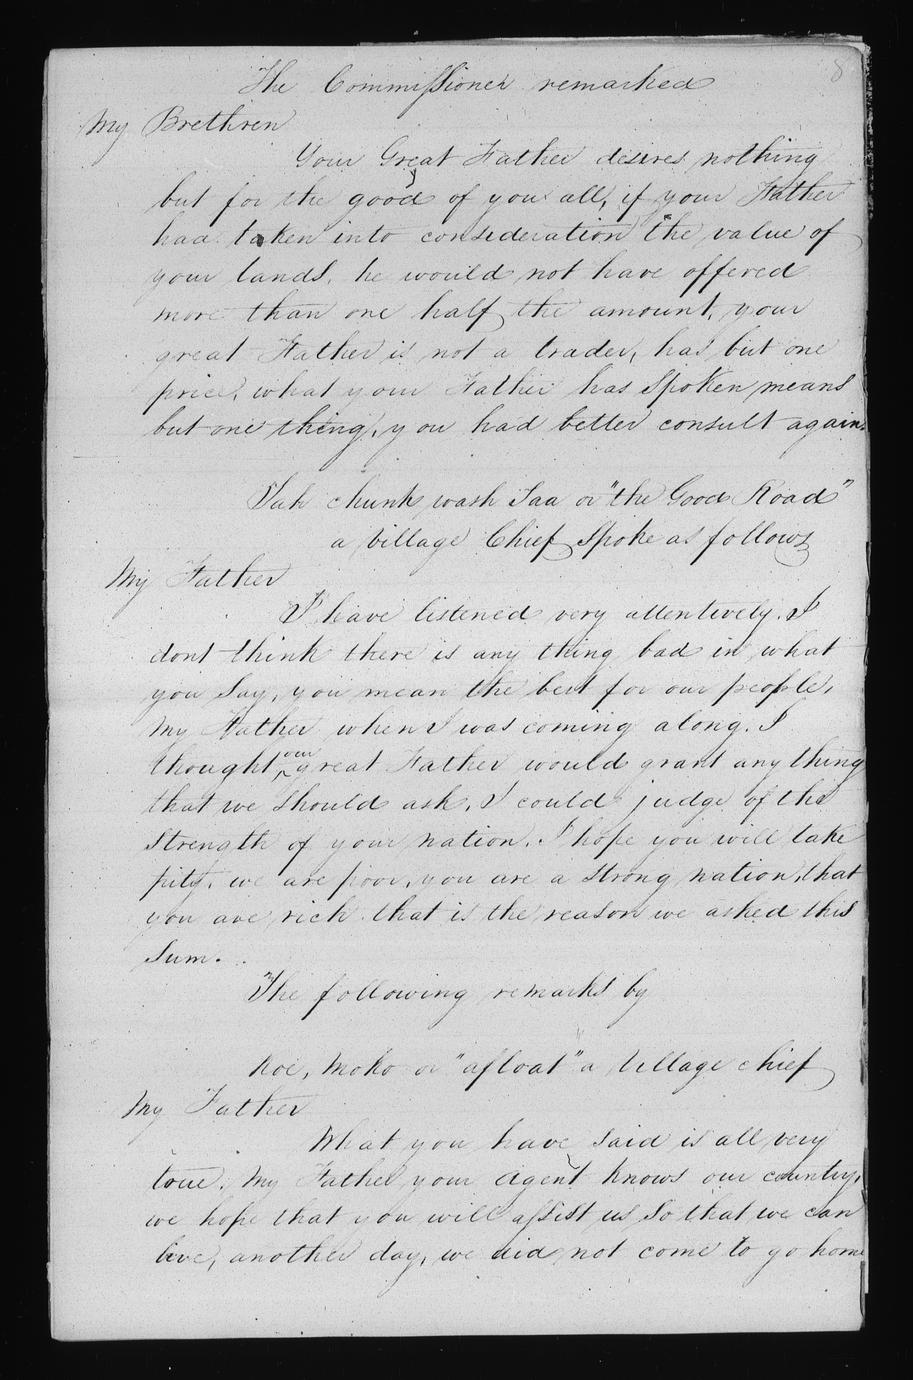 8
The Commissioner remarked
My Brethren
Your Great Father desires nothing
but for the good of you all, if your Father
had taken into consideration the value of
your lands, he would not have offered
more than one half the amount, your
great Father is not a trader, has but one
price, what your Father has Spoken means
but one thing, you had better consult again.
Tah chunk wash Taa or "the Good Road"
a Village Chief Spoke as follows
My Father
I have listened very attentively. I
dont think there is any thing bad in what
you Say, you mean the best for our people,
My Father when I was coming along. I
thought our great Father would grant any thing
that we Should ask, I could judge of the
Strength of your nation. I hope you will take
pity, we are poor, you are a Strong nation, that
you are rich that is the reason we asked this
Sum.
The following remarks by
Koe, Moko or "afloat" a Village chief
My Father
What you have Said is all very
true. My Father your Agent knows our country,
we hope that you will assist us So that we can
live, another day, we did not come to go home